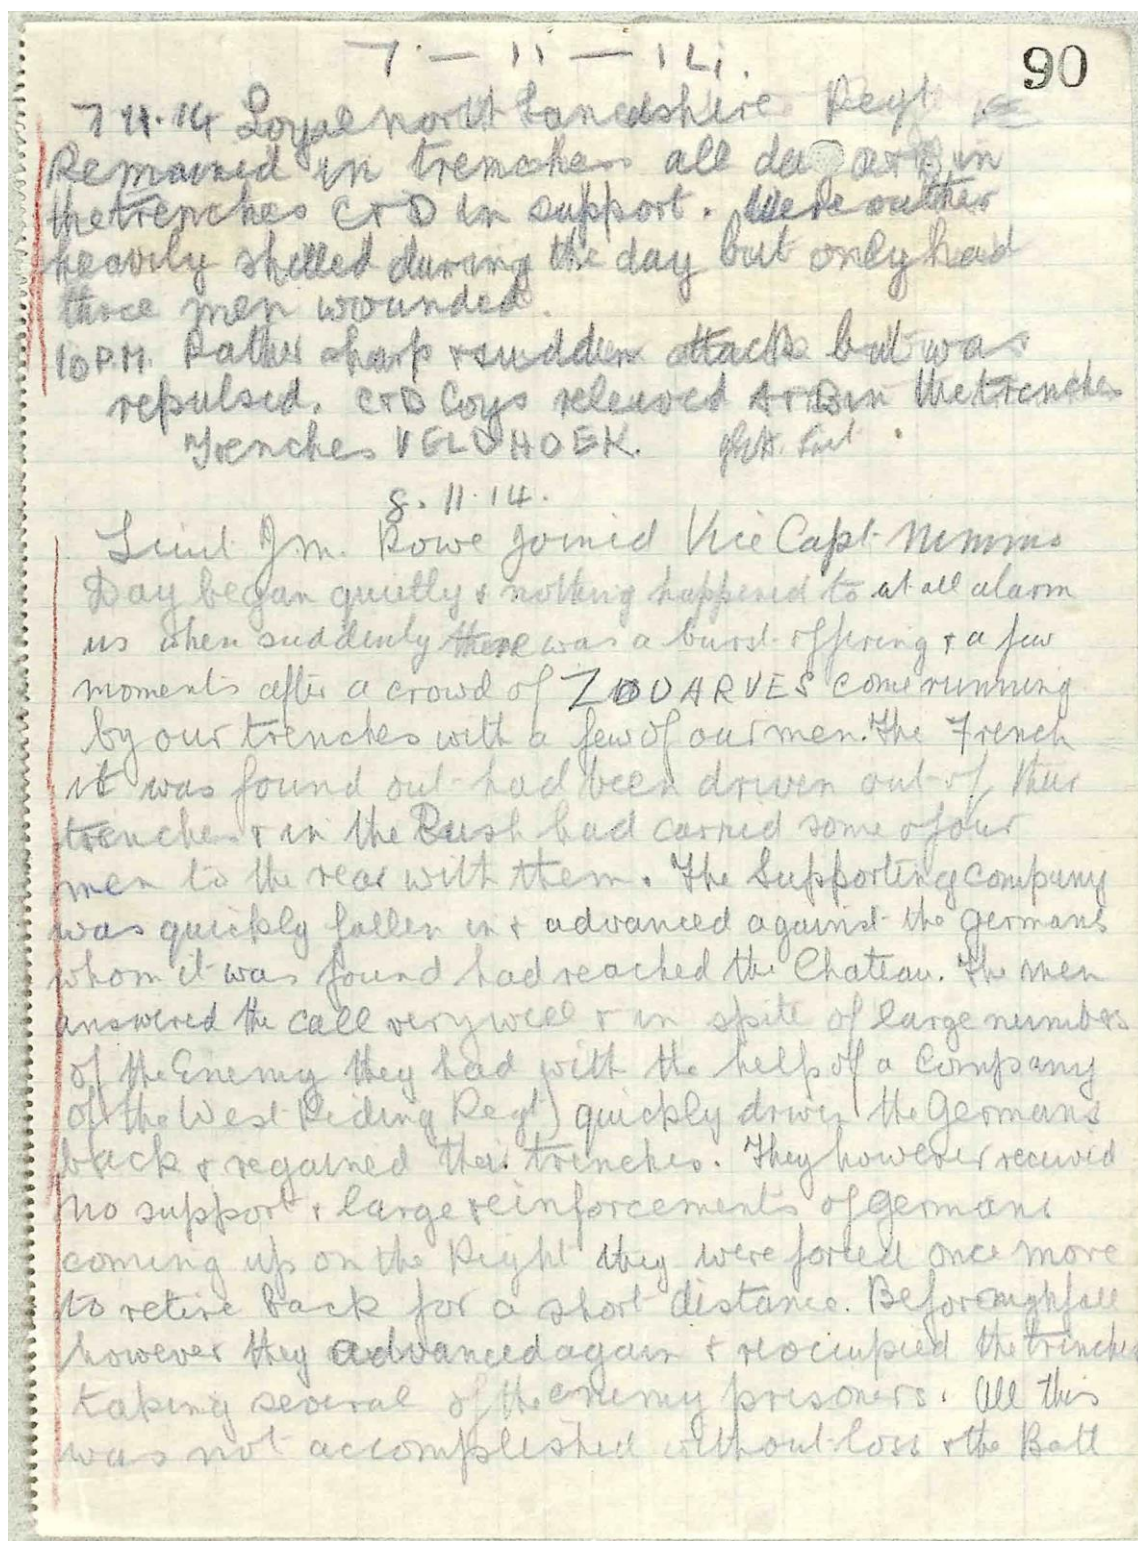 90
7 - 11 - 14.
7.11.14 Loyal North Lancashire Regt
Remained in trenches all day A+B in
the trenches C+D in support. Were rather
heavily shelled during the day but only had
three men wounded.
10 P.M. Rather sharp + sudden attack but was
repulsed. C+D Coys releived A+B in the trenches
Trenches VELDHOEK.
8.11.14.
Lieut J.M. Rowe joined Vice Capt Nimmo
Day began quietly + nothing happened to at all alarm
us when suddenly there was a burst of firing + a few
moments after a crowd of ZOUARVES come running
by our trenches with a few of our men. The French
it was found out had been driven out of their
trenches + in the Rush had carried some of our
men to the rear with them. The Supporting Company
was quickly fallen in + advanced against the Germans
whom it was found had reached the Chateau. The men
answered the call very well + in spite of large numbers
of the Enemy they had with the help of a Company
of the West Riding Regt) quickly driven the Germans
back + regained their trenches. They however received
no support + large reinforcements of Germans
coming up on the Right they were forced once more
to retire back for a short distance. Before nightfall
however they advanced again + reoccupied the trenches
taking several of the enemy prisoners. All this
was not accomplished without loss + the Batt